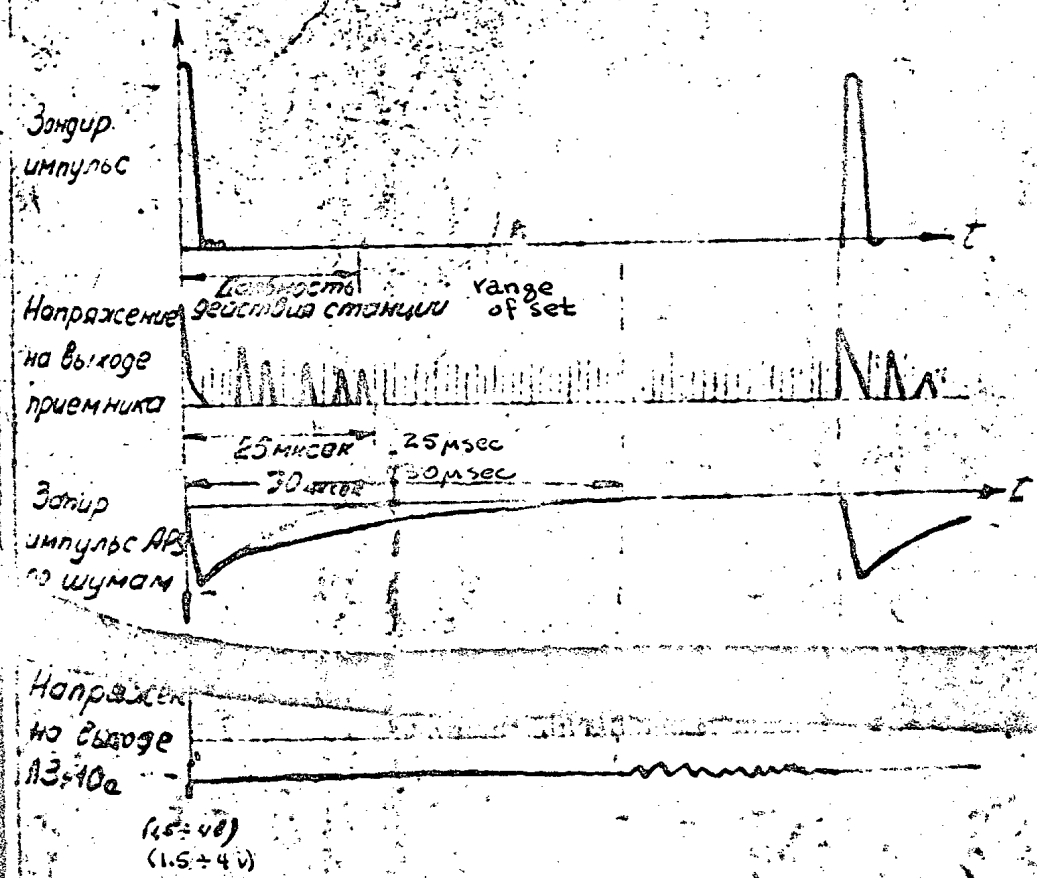 Зондир.
импульс
t
Дальность
действия станции
range
of set
Напряжение
на выходе
приемника
25 мксек
25 μsec
30 мксек
30 μsec
t
Запир
импульс АРУ
по шумам
Напряжен
на выходе
Л3-10а
(1,5÷4в)
(1.5÷4 v)